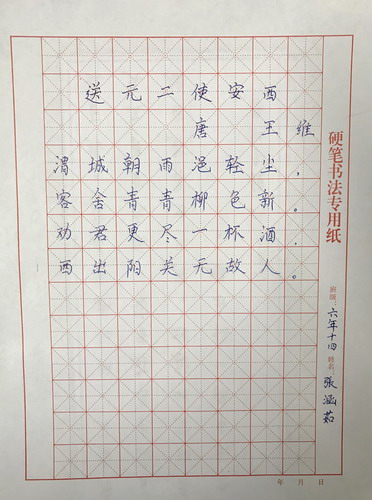 送元二使安西
唐 王 维
渭城朝雨浥轻尘，
客舍青青柳色新。
劝君更尽一杯酒，
西出阳关无故人。
硬笔书法专用纸
班级：六年十四 姓名：张涵茹
年 月 日